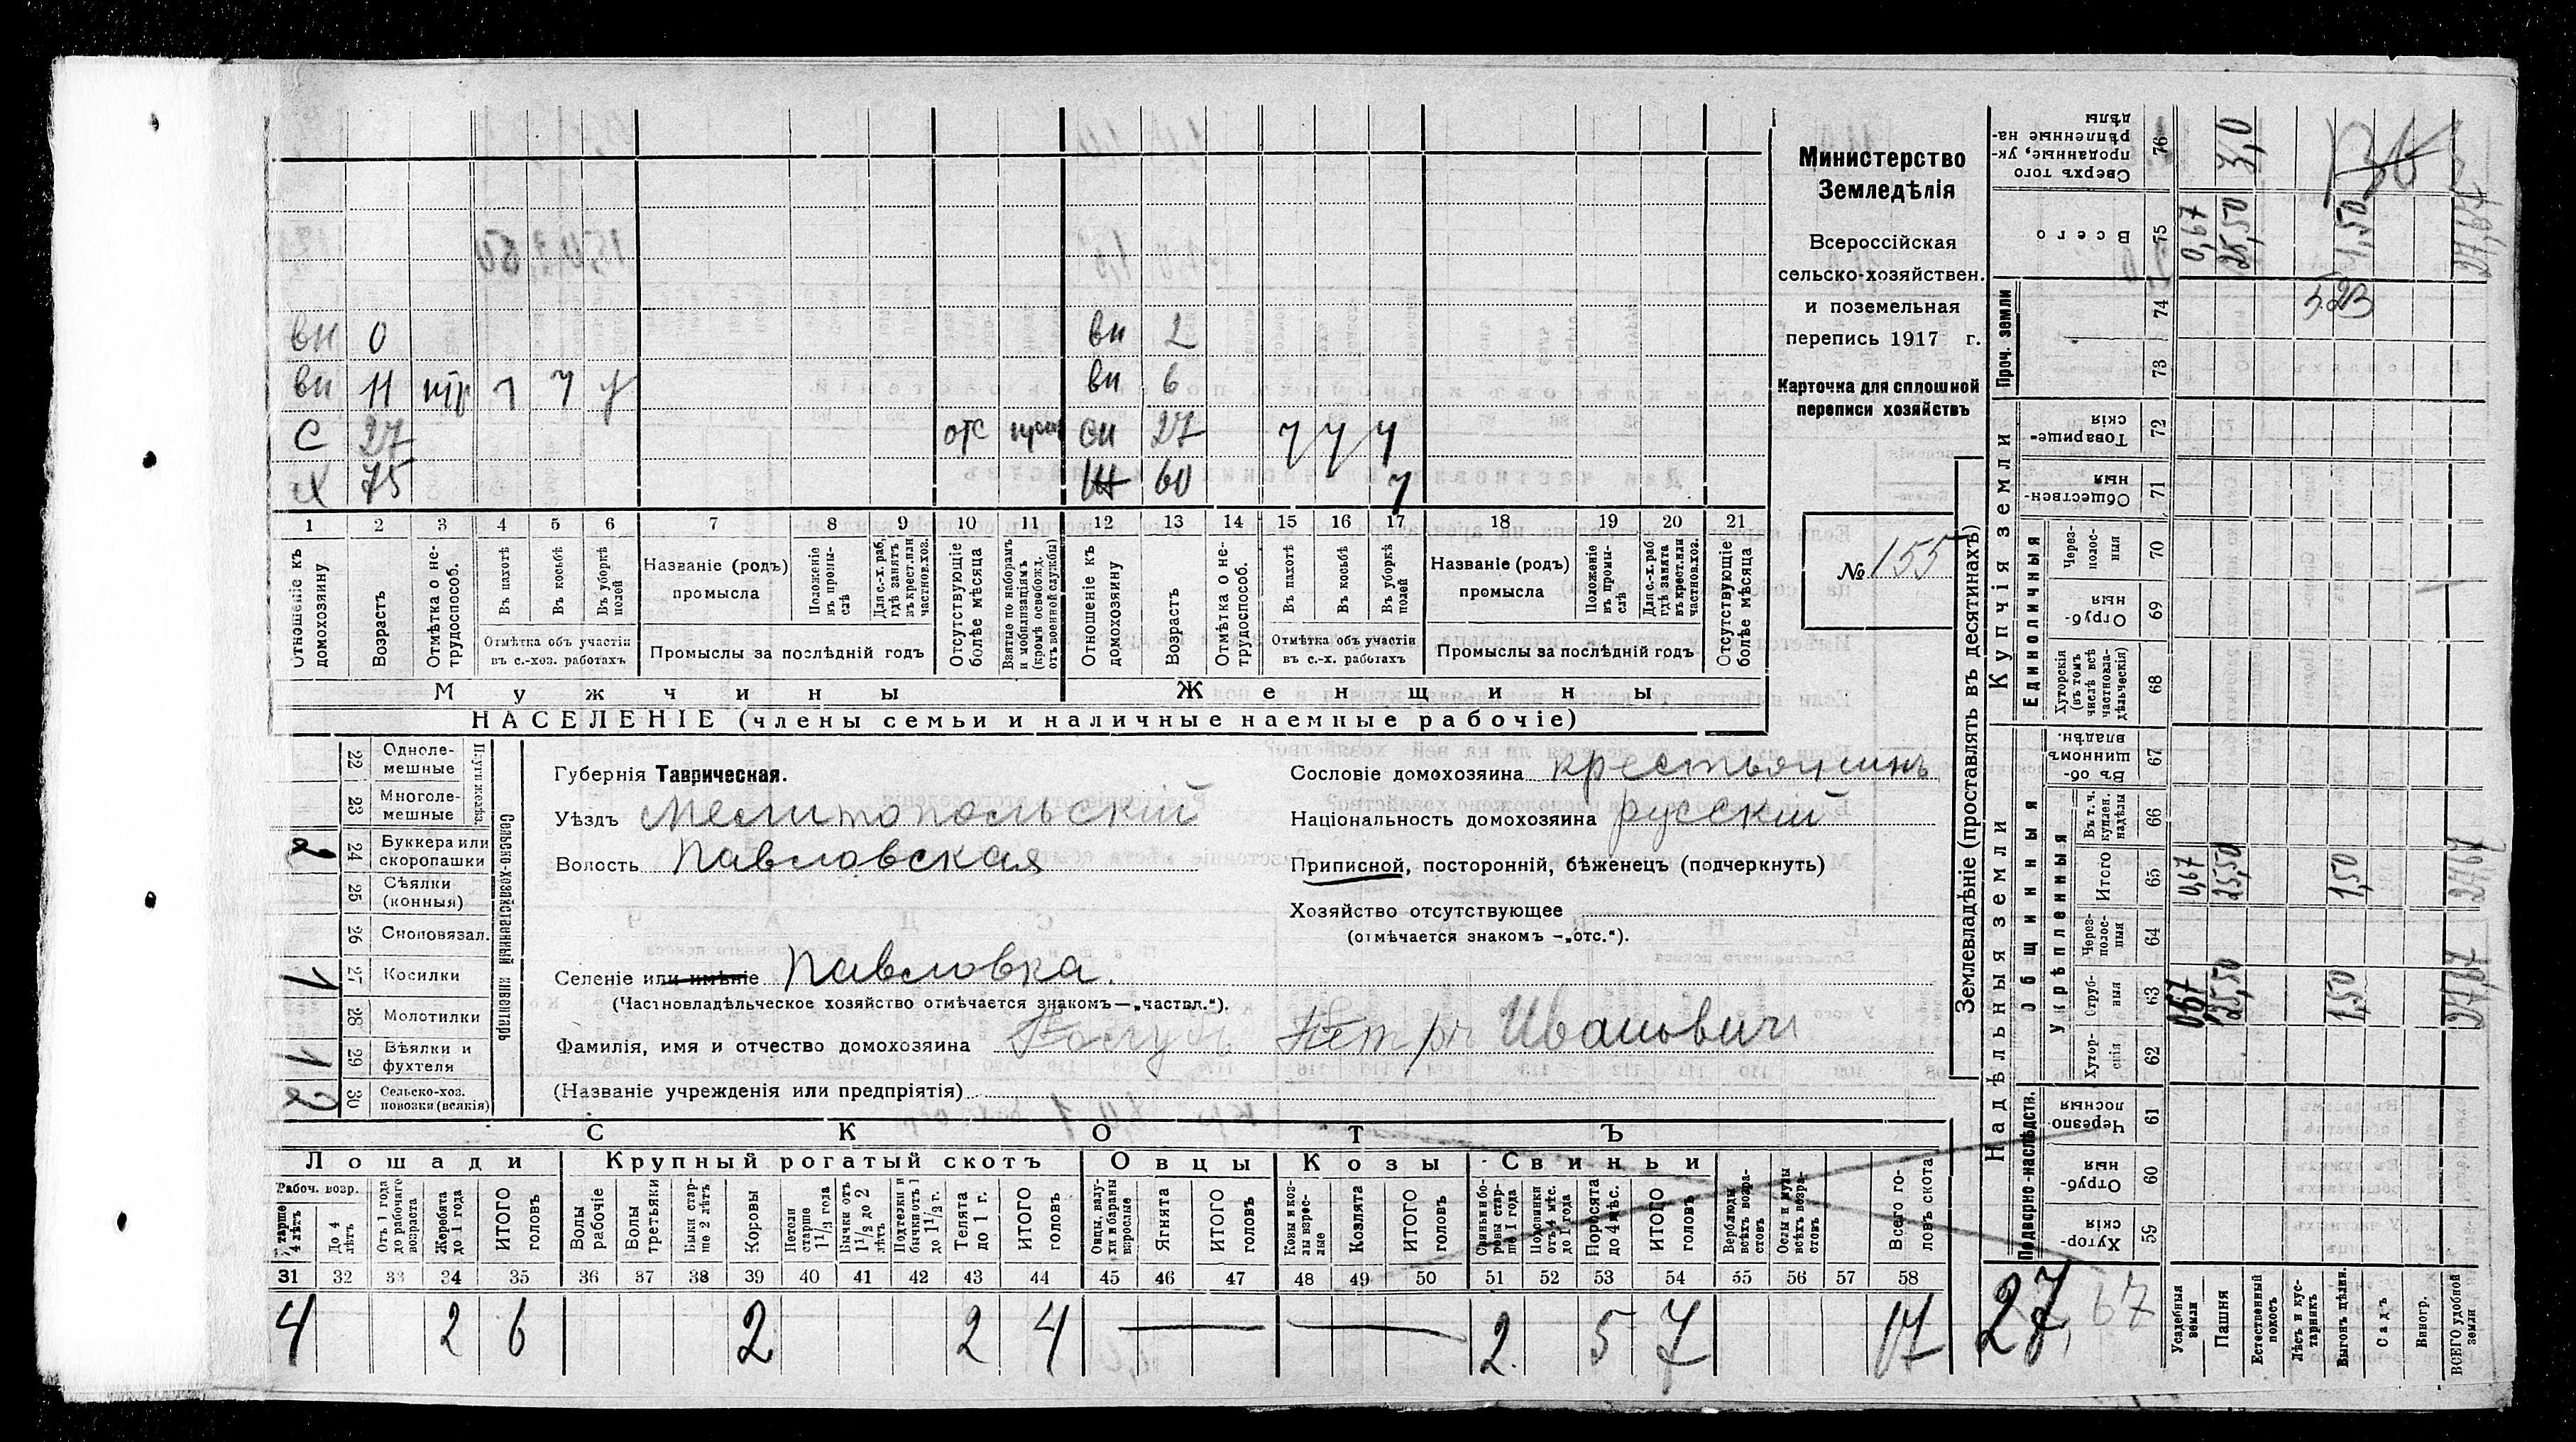 Министерство
Земледѣлія
Всероссійская
сельско-хозяйствен.
и поземельная
перепись 1917 г.
Карточка для сплошной
переписи хозяйствъ
№ 155
вн 0 вн 2
вн 11 вн 6
с 27 отс сн 27
х 75 60
1 2 3 4 5 6 7 8 9 10 11 12 13 14 15 16 17 18 19 20 21
Отношеніе къ домохозяину
Возрастъ
Отмѣтка о не-трудоспособ.
Въ пахотѣ
Въ косьбѣ
Въ уборкѣ полей
Отмѣтка объ участіи въ с.-хоз. работахъ
Названіе (родъ) промысла
Положеніе въ промы-слѣ
Для с.-х. раб. гдѣ занятъ въ крест. или частнов. хоз.
Промыслы за послѣдній годъ
Отсутствующіе болѣе мѣсяца
Взятые по наборамъ и мобилизаціямъ (кромѣ освобожд. отъ военной службы)
Отношеніе къ домохозяину
Возрастъ
Отмѣтка о не-трудоспособ.
Въ пахотѣ
Въ косьбѣ
Въ уборкѣ полей
Отмѣтка объ участіи въ с.-х. работахъ
Названіе (родъ) промысла
Положеніе въ промы-слѣ
Для с.-х. раб. гдѣ занята въ крест. или частнов. хоз.
Промыслы за послѣдній годъ
Отсутствующіе болѣе мѣсяца
Мужчины Женщины
НАСЕЛЕНІЕ (члены семьи и наличные наемные рабочіе)
Сельско-хозяйственный инвентарь
Плуги желѣз.
22 Одноле-мешные
23 Многоле-мешные
2 24 Буккера или скоропашки
25 Сѣялки (конныя)
26 Сноповязал.
1 27 Косилки
28 Молотилки
1 29 Вѣялки и фухтеля
2 30 Сельско-хоз. повозки (всякія)
Губернія Таврическая.
Уѣздъ Мелитопольскій
Волость Павловская
Сословіе домохозяина крестьянинъ
Національность домохозяина русскій
Приписной, посторонній, бѣженецъ (подчеркнуть)
Хозяйство отсутствующее
(отмѣчается знакомъ —„отс.“).
Селеніе или имѣніе Павловка.
(Частновладѣльческое хозяйство отмѣчается знакомъ—„частвл.“).
Фамилія, имя и отчество домохозяина Петръ Ивановичъ
(Названіе учрежденія или предпріятія)
СКОТЪ
Лошади Крупный рогатый скотъ Овцы Козы Свиньи
Рабоч. возр.
Старше 4 лѣтъ
До 4 лѣтъ
Отъ 1 года до рабочаго возраста
Жеребята до 1 года
ИТОГО головъ
Волы рабочіе
Волы третьяки
Быки стар-ше 2 лѣтъ
Коровы
Нетели старше 1 1/2 года
Бычки отъ 1 1/2 до 2 лѣтъ
Подтелки и бычки отъ 1 до 1 1/2 г.
Телята до 1 г.
ИТОГО головъ
Овцы, валу-хи и бараны взрослые
Ягнята
ИТОГО головъ
Козы и коз-лы взрос-лые
Козлята
ИТОГО головъ
Свиньи и бо-ровы стар-ше 1 года
Подсвинки отъ 4 мѣс. до 1 года
Поросята до 4 мѣс.
ИТОГО головъ
Верблюды всѣхъ возра-стовъ
Ослы и мулы всѣхъ возра-стовъ
Всего го-ловъ скота
31 32 33 34 35 36 37 38 39 40 41 42 43 44 45 46 47 48 49 50 51 52 53 54 55 56 57 58
4 2 6 2 2 4 2 5 7 17
27,67
Землевладѣніе (проставлять въ десятинахъ)
Надѣльныя земли
Купчія земли
Проч. земли
Подворно-наслѣдств.
Общинныя
Укрѣпленныя
Единоличныя
Сверхъ того проданные, ук-рѣпленные на-дѣлы 76 3,0
Всего 75 0,67 25,50 1,50 27,67
74
73
Товарище-скія 72
Обществен-ныя 71
Через-полос-ныя 70
Отруб-ныя 69
Хуторскія (въ томъ числѣ всѣ частновла-дѣльческія) 68
Въ об-щинномъ владѣн. 67
Въ т. ч. куплен. надѣлы 66
Итого 65 0,67 25,50 1,50 27,67
Через-полос-ныя 64
Отруб-ныя 63 0,67 25,50 1,50 27,67
Хутор-скія 62
Черезпо-лосныя 61
Отруб-ныя 60
Хутор-скія 59
Усадебныя земли
Пашня
Естественный покосъ
Лѣсъ и кус-тарникъ
Выгонъ цѣлин.
Садъ
Виногр.
ВСЕГО удобной земли